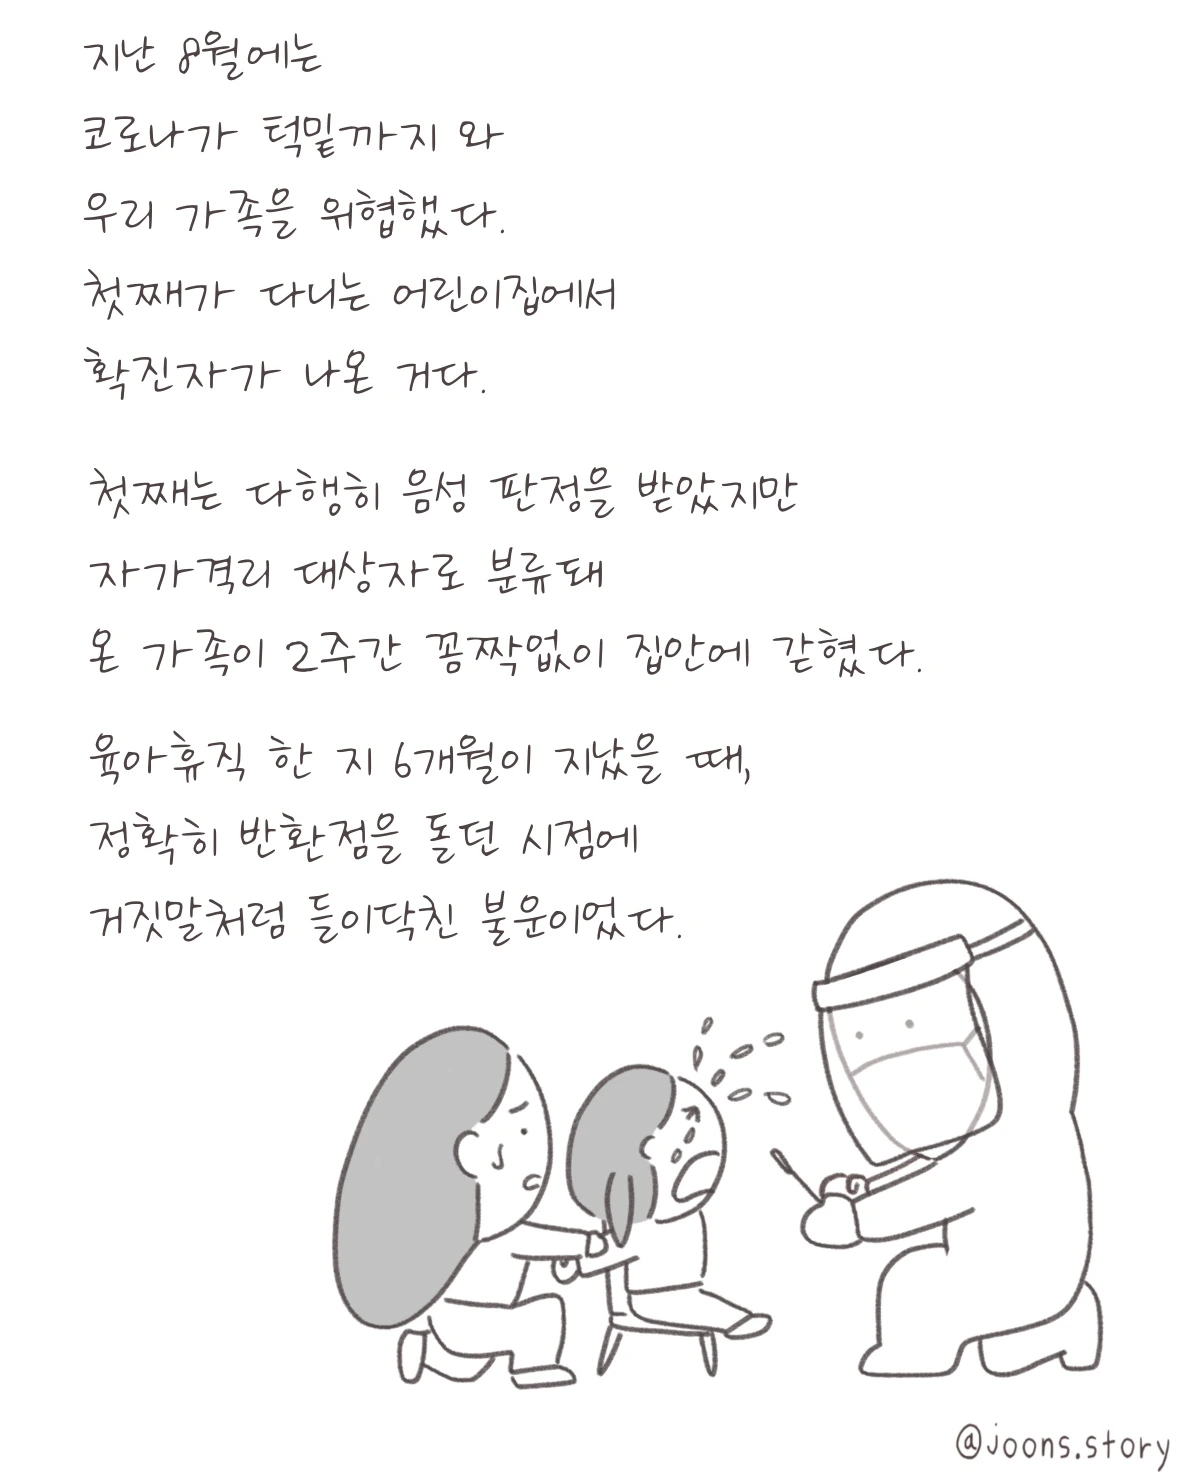 지난 8월에는
코로나가 턱밑까지 와
우리 가족을 위협했다.
첫째가 다니는 어린이집에서
확진자가 나온 거다.
첫째는 다행히 음성 판정을 받았지만
자가격리 대상자로 분류돼
온 가족이 2주간 꼼짝없이 집안에 갇혔다.
육아휴직 한 지 6개월이 지났을 때,
정확히 반환점을 돌던 시점에
거짓말처럼 들이닥친 불운이었다.
@joons.story